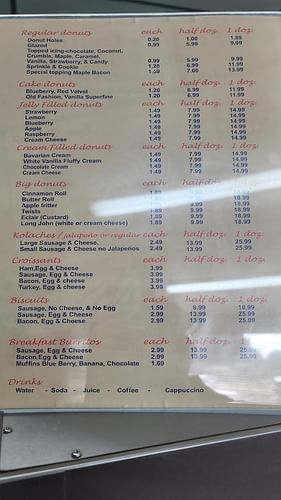 Regular donuts each half doz. 1 doz.
Donut Holes 0.20 1.00 1.85
Glazed 0.99 5.99 9.99
Topped icing-chocolate, Coconut,
Crumble, Maple, Caramel,
Vanilla, Strawberry, & Candy 0.99 5.99 9.99
Sprinkle & Cookie 1.20 6.99 11.99
Special topping Maple Bacon 1.59 7.00 13.99
Cake donuts each half doz. 1 doz.
Blueberry, Red Velvet 1.20 6.99 11.99
Old Fashion, Vanilla Superfine 1.20 6.99 11.99
Jelly Filled donuts each half doz. 1 doz.
Strawberry 1.49 7.99 14.99
Lemon 1.49 7.99 14.99
Blueberry 1.49 7.99 14.99
Apple 1.49 7.99 14.99
Raspberry 1.49 7.99 14.99
Cream Cheese 1.49 7.99 14.99
Cream Filled donuts each half doz. 1 doz.
Bavarian Cream 1.49 7.99 14.99
White Vanilla Fluffy Cream 1.49 7.99 14.99
Chocolate Cream 1.49 7.99 14.99
Cream Cheese 1.49 7.99 14.99
Big donuts each half 1 doz.
Cinnamon Roll 18.99
Butter Roll 18.99
Apple fritter 9.99 18.99
Twists 1.89 9.99 18.99
Eclair (Custard) 1.89 9.99 18.99
Long John (white or cream cheese) 1.89 9.99 18.99
Kolaches / jalapeno or regular each half doz. 1 doz.
Large Sausage & Cheese. 2.49 13.99 25.99
Small Sausage & Cheese no Jalapeños 2.49 13.99 25.99
Croissants each half doz. 1 doz.
Ham,Egg & Cheese 3.99
Sausage, Egg & Cheese 3.99
Bacon, Egg & cheese 3.99
Turkey, Egg & cheese 3.99
Biscuits each half doz. 1 doz.
Sausage, No Cheese, & No Egg 1.59 9.99 18.99
Sausage, Egg & Cheese 2.99 13.99 25.99
Bacon, Egg & Cheese 2.99 13.99 25.99
Breakfast Burritos each half doz. 1 doz.
Sausage, Egg & Cheese 2.99 13.99 25.99
Bacon,Egg & Cheese 2.99 13.99 25.99
Muffins Blue Berry, Banana, Chocolate 1.69
Drinks
Water - Soda - Juice - Coffee - Cappuccino